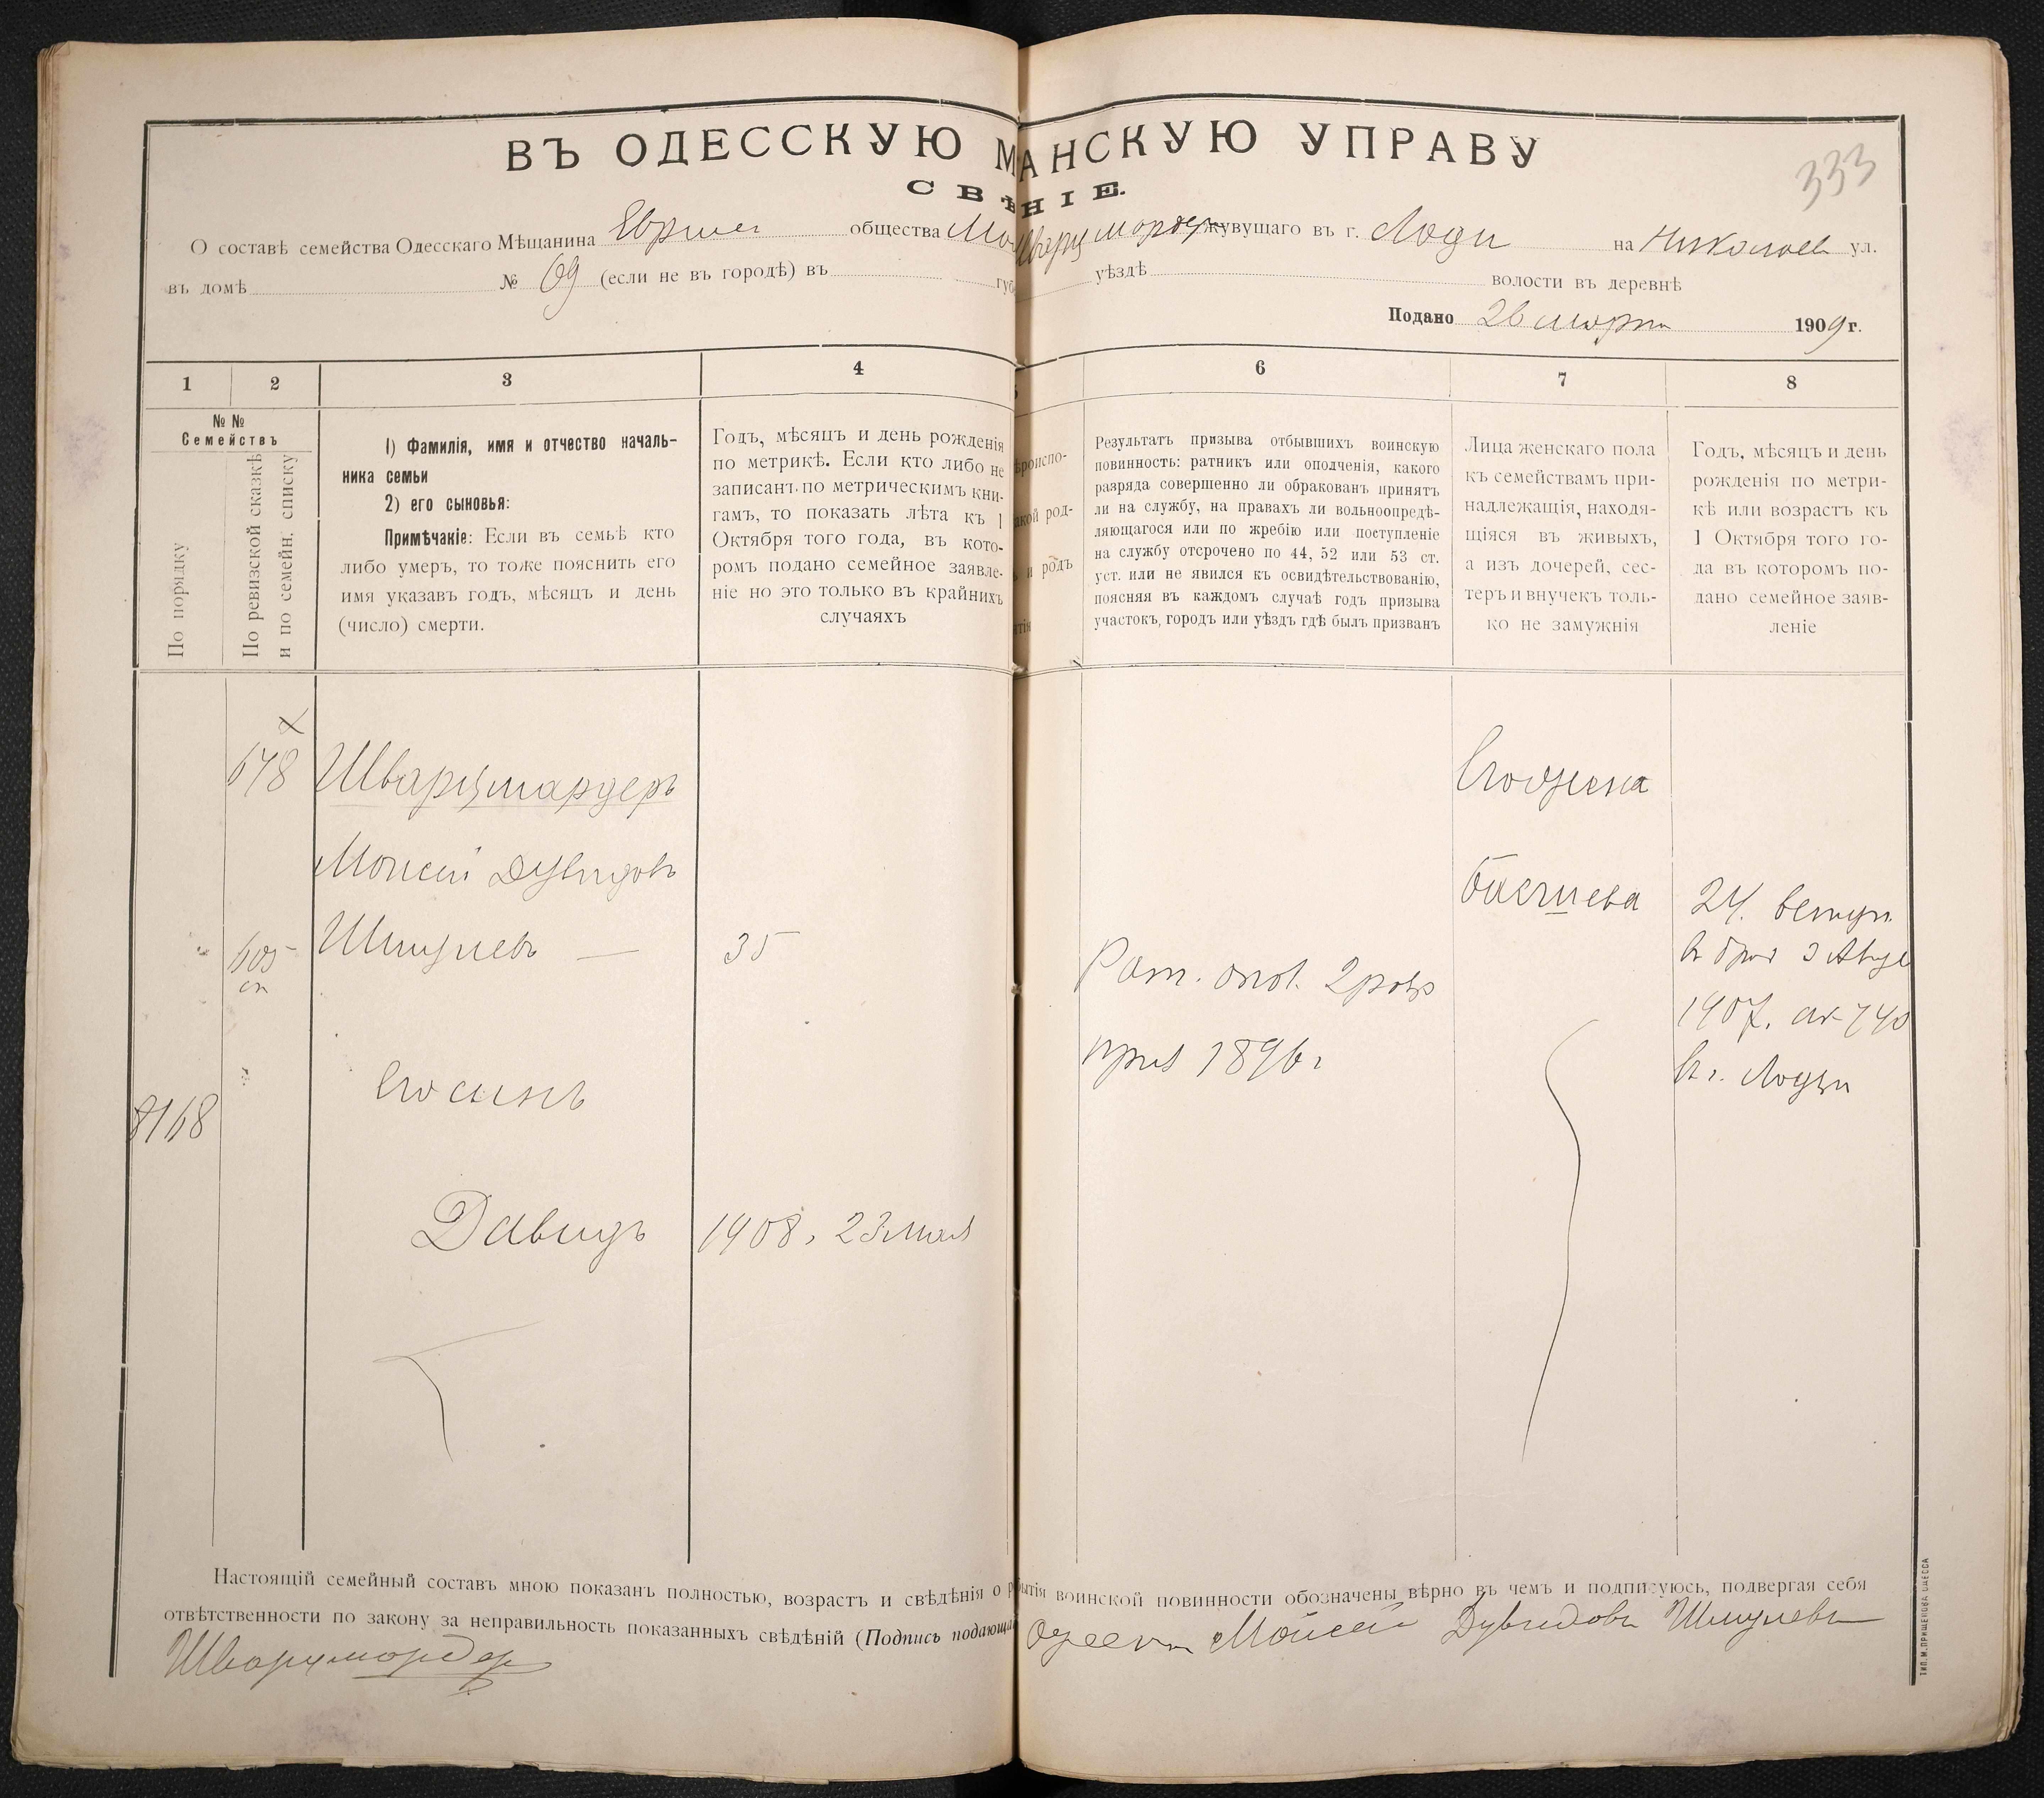 ВЪ ОДЕССКУЮ М АНСКУЮ УПРАВУ
СВѢ НІЕ.
333
О составѣ семейства Одесскаго Мѣщанина общества Шварцмордер живущаго въ г. Лоди на Николаев ул.
въ домѣ № 69 (если не въ городѣ) въ губ уѣздѣ волости въ деревнѣ
Подано 26 марта 1909 г.
1 2 3 4 6 7 8
№№
Семействъ
По порядку
По ревизской сказкѣ
и по семейн. списку
1) Фамилія, имя и отчество началь-
ника семьи
2) его сыновья:
Примѣчакіе: Если въ семьѣ кто
либо умеръ, то тоже пояснить его
имя указавъ годъ, мѣсяцъ и день
(число) смерти.
Годъ, мѣсяцъ и день рожденія
по метрикѣ. Если кто либо не
записанъ по метрическимъ кни-
гамъ, то показать лѣта къ 1
Октября того года, въ кото-
ромъ подано семейное заявле-
ніе но это только въ крайнихъ
случаяхъ
ѣроиспо-
акой род-
ь и родъ
тія
Результатъ призыва отбывшихъ воинскую
повинность: ратникъ или ополченія, какого
разряда совершенно ли обракованъ принятъ
ли на службу, на правахъ ли вольноопредѣ-
ляющагося или по жребію или поступленіе
на службу отсрочено по 44, 52 или 53 ст.
уст. или не явился къ освидѣтельствованію,
поясняя въ каждомъ случаѣ годъ призыва
участокъ, городъ или уѣздъ гдѣ былъ призванъ
Лица женскаго пола
къ семействамъ при-
надлежащія, находя-
щіяся въ живыхъ,
а изъ дочерей, сес-
теръ и внучекъ толь-
ко не замужнія
Годъ, мѣсяцъ и день
рожденія по метри-
кѣ или возрастъ къ
1 Октября того го-
да въ котором по-
дано семейное заяв-
леніе
678 Шварцмардеръ
Моисей Дувидовъ
605 Шмулевъ — 35
Его сынъ
8168
Давидъ 1908, 23 мая
Рат. опол. 2 разр
приз 1896 г
Его жена
Басшева
24. вступ.
в брак 3 Авгус
1907. ак 740
в г. Лодзи
Настоящій семейный составъ мною показанъ полностью, возрастъ и свѣдѣнія о р бытія воинской повинности обозначены вѣрно въ чемъ и подписуюсь, подвергая себя
отвѣтственности по закону за неправильность показанныхъ свѣдѣній (Подпись подающа Моисей Дувидовъ Шмулевъ
Шварцмордер
ТИП. М. ПРИЩЕПОВА ОДЕССА